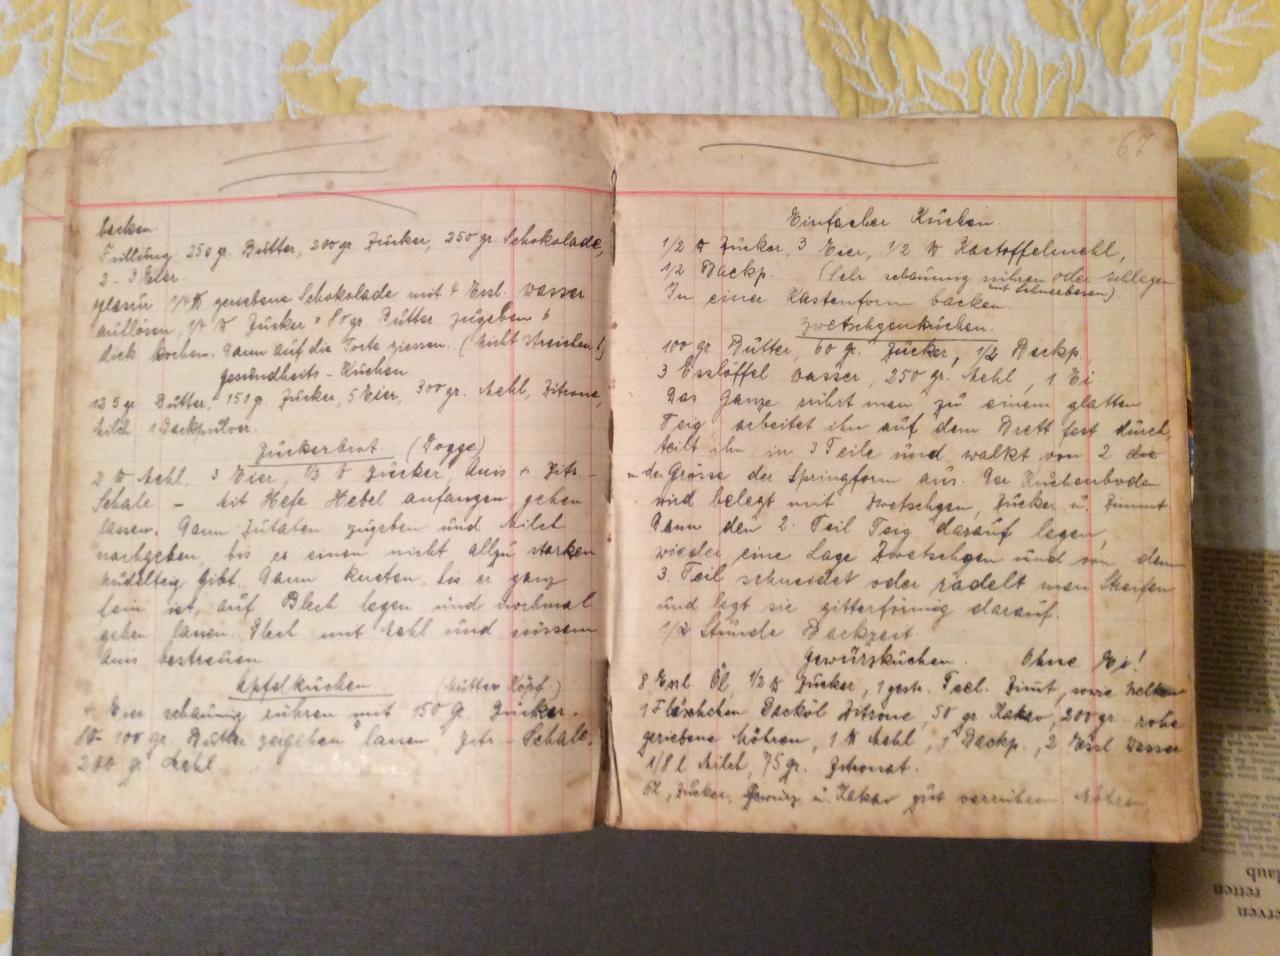 backen.
Füllung: 250 gr. Butter, 200 gr Zucker, 250 gr. Schokolade,
2 - 3 Eier.
Glasur 1/4 ℔ geriebene Schokolade mit 4 Essl. Wasser
auflösen, 1/4 ℔ Zucker 80 gr. Butter zugeben
dick kochen. Dann auf die Torte giessen. (Nicht streichen!)
Gesundheits - Kuchen.
125 gr. Butter, 150 g. Zucker, 5 Eier, 300 gr. Mehl, Zitrone,
Milch 1 Backpulver.
Zuckerbrot. (Dogge)
2 ℔ Mehl, 3 Eier, 1/3 ℔ Zucker, Anis + Zitr. -
Schale - Mit Hefe Hebel anfangen, gehen
lassen. Dann Zutaten zugeben und Milch
nachgeben, bis es einen nicht allzu starken
Nudelteig gibt. Dann kneten, bis er ganz
fein ist, auf Blech legen und nochmal
gehen lassen. Blech mit Mehl und süssem
Anis bestreuen.
Apfelkuchen. (Mutter Köpf.)
4 Eier schaumig rühren mit 150 g. Zucker.
80 - 100 gr. Butter zergehen lassen, Zitr. - Schale.
200 g. Mehl
67
Einfacher Kuchen
1/2 ℔ Zucker, 3 Eier, 1/2 ℔ Kartoffelmehl,
1/2 Backp. (Sehr schaumig rühren oder schlagen
mit Schneebesen)
In einer Kastenform backen.
Zwetschgenkuchen.
100 gr Butter, 60 gr. Zucker, 1/2 Backp.
3 Esslöffel Wasser, 250 gr. Mehl, 1 Ei
Das Ganze rührt man zu einem glatten
Teig arbeitet ihn auf dem Brett fest durch,
teilt ihn in 3 Teile und walkt von 2 die
in der Grösse der Springform aus. Der Kuchenboden
wird belegt mit Zwetschgen, Zucker u. Zimmt.
Dann den 2. Teil Teig darauf legen,
wieder eine Lage Zwetschgen und von dem
3. Teil schneidet oder rädelt man Streifen
und legt sie gitterförmig darauf.
1/2 Stunde Backzeit.
Gewürzkuchen. Ohne Ei!
8 Essl. Öl, 1/2 ℔ Zucker, 1 gestr. Teel. Zimt, sowie Nelken
1 Fläschchen Backöl Zitrone, 50 gr. Kakao, 200 gr. rohe
geriebene Möhren, 1 ℔ Mehl, 1 Backp., 2 Essl Wasser
1/8 l Milch, 75 gr. Zitronat.
Öl, Zucker, Gewürz u. Kakao gut verrühren. Möhren,